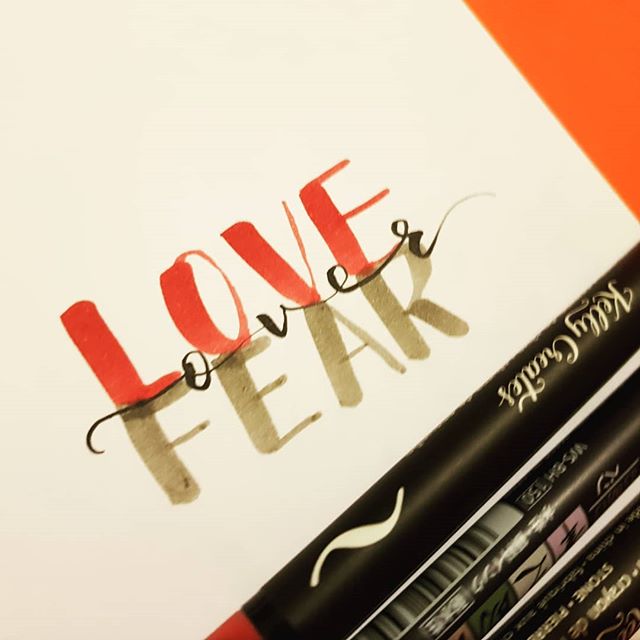 LOVE
over
FEAR
Kelly Creates